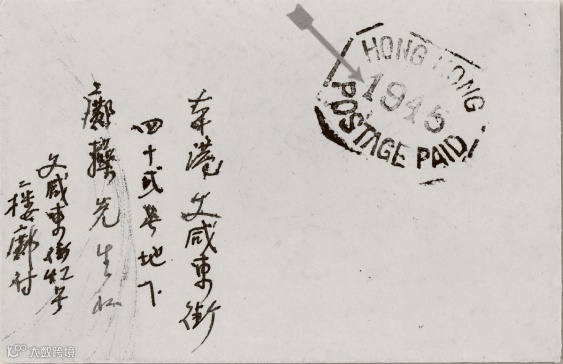 HONG KONG
1945
POSTAGE PAID
本港文咸東街
四十弍号地下
鄺操先生收
文咸東街号
二樓鄺付
大数跨境